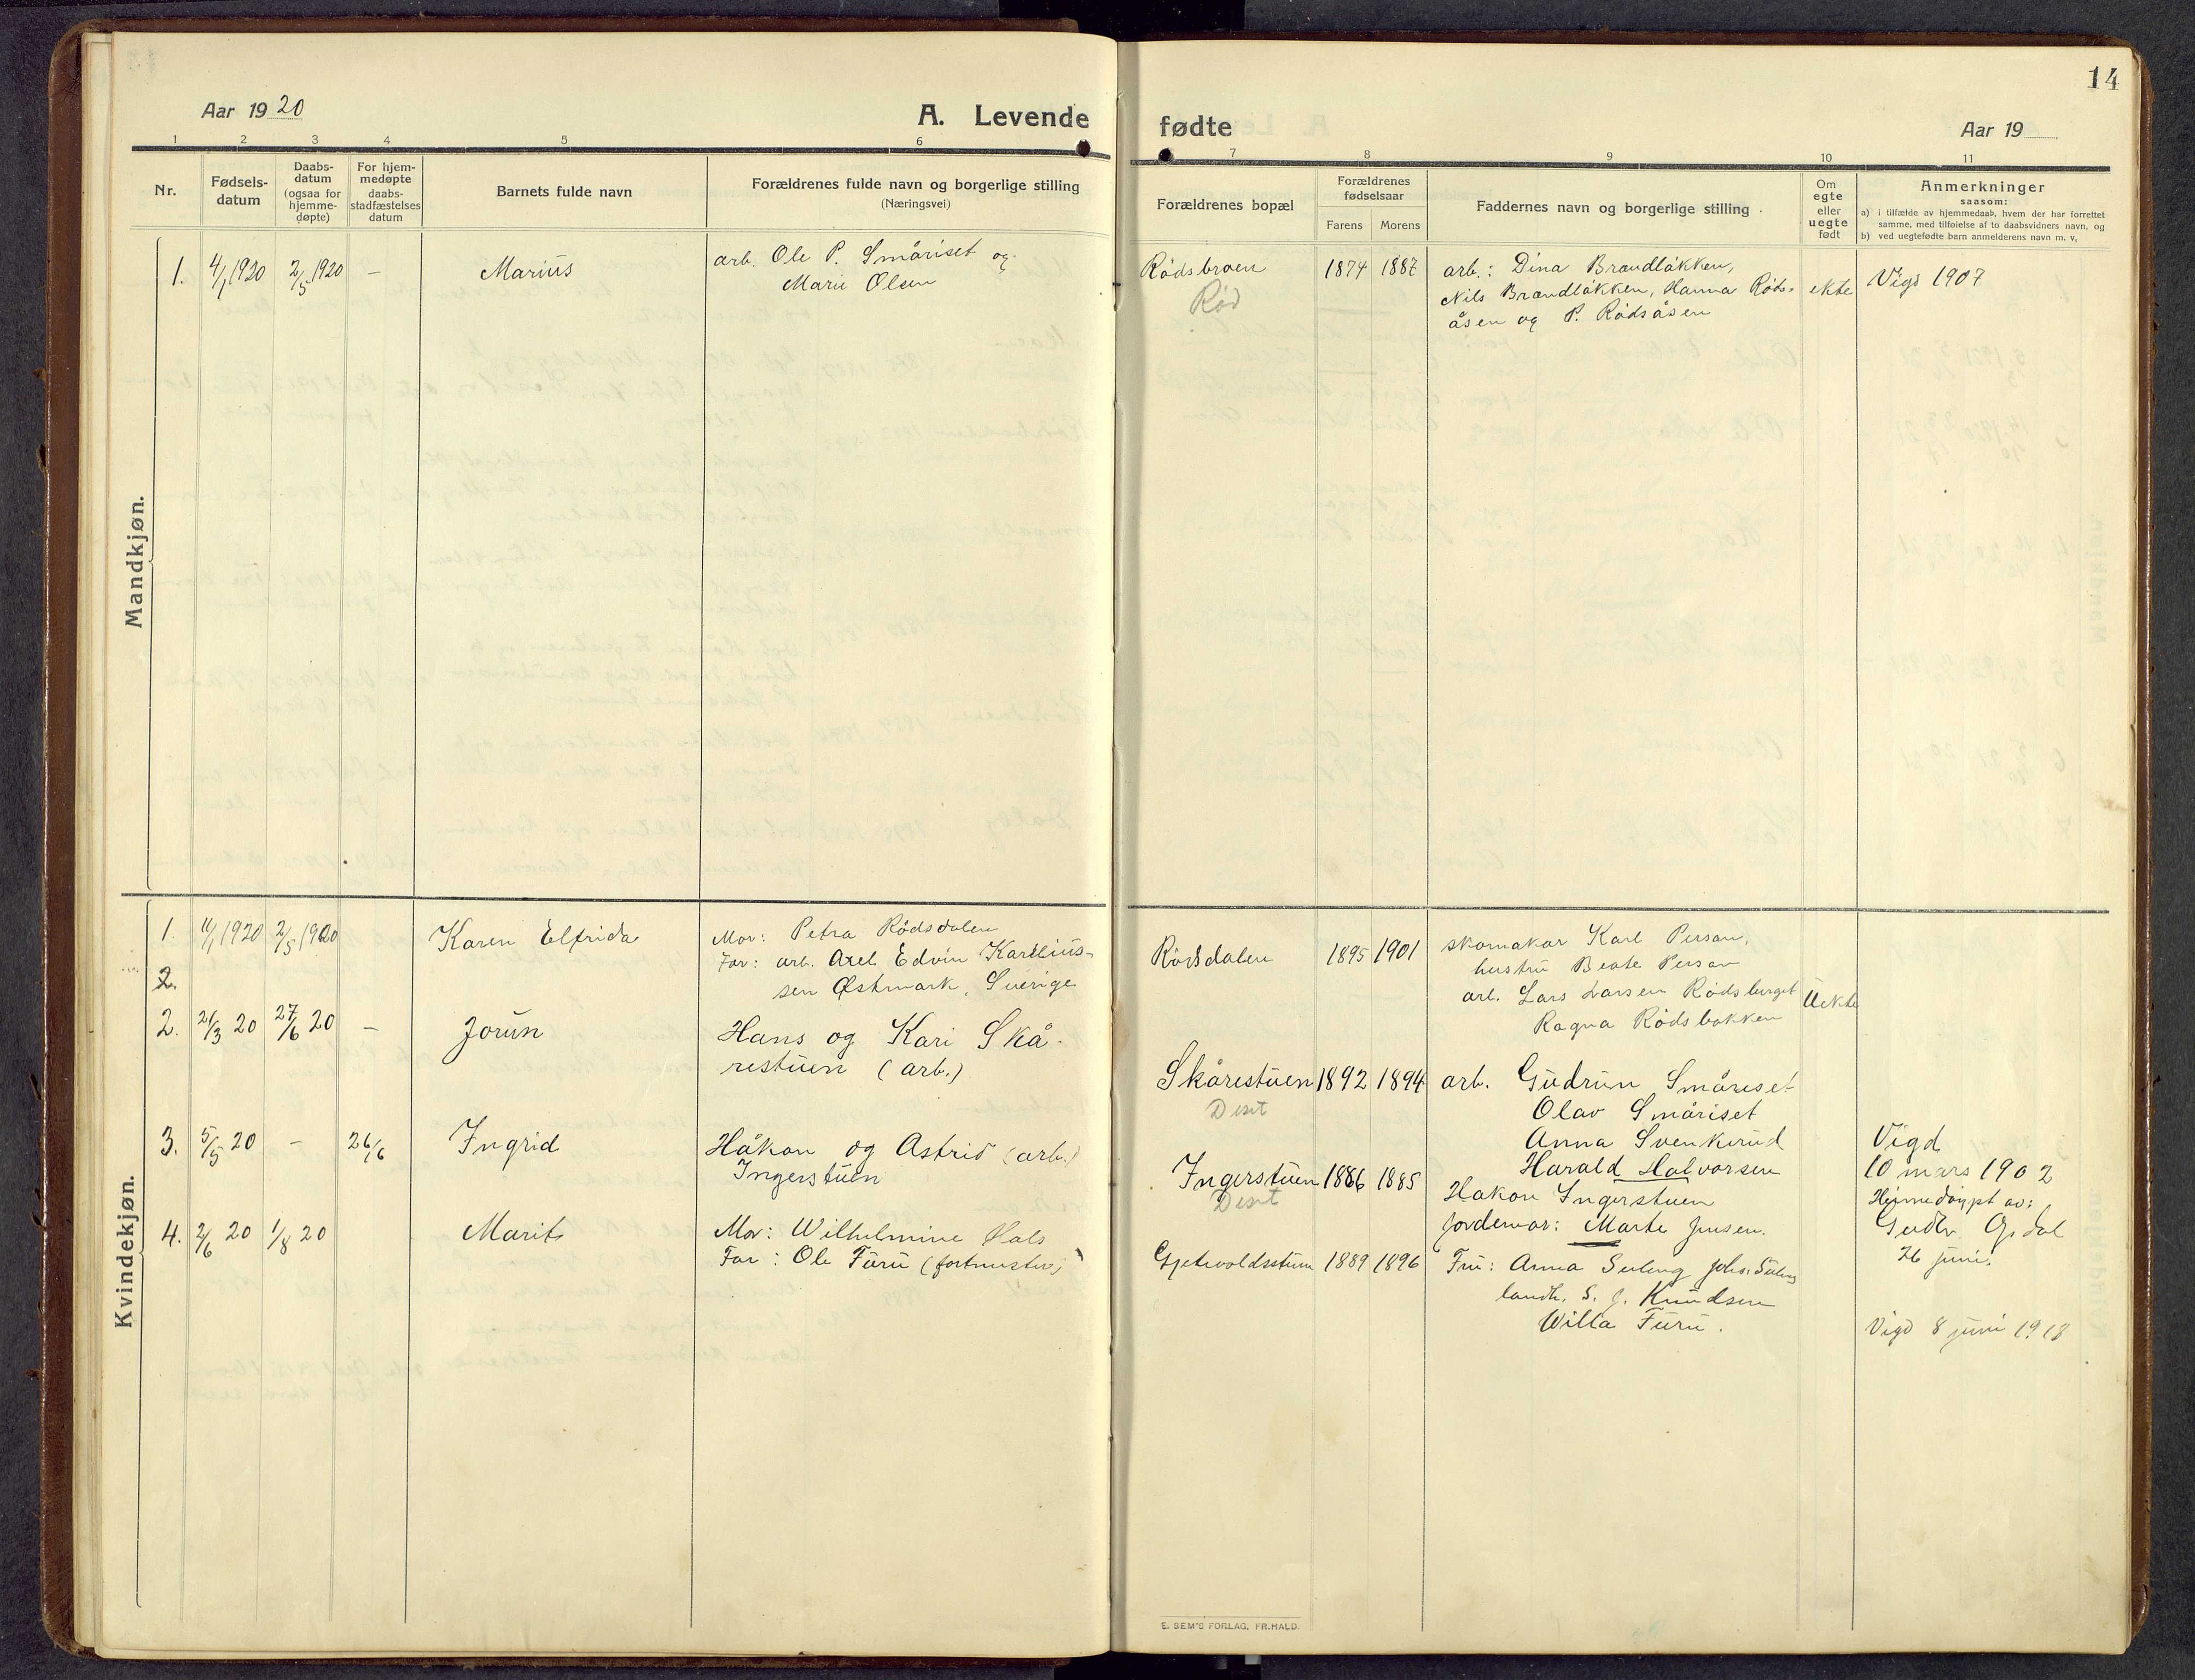 14
Aar 1920
A. Levende
fødte
Aar 19
1 2 3 4 5 6
7 8 9 10 11
Nr.
Fødsels-
datum
Daabs-
datum
(ogsaa for
hjemme-
døpte)
For hjem-
medøpte
daabs-
stadfæstelses
datum
Barnets fulde navn
Forældrenes fulde navn og borgerlige stilling
(Næringsvei)
Forældrenes bopæl
Forældrenes
fødselsaar
Farens Morens
Faddernes navn og borgerlige stilling
Om
egte
eller
uegte
født
Anmerkninger
saasom:
a) i tilfælde av hjemmedaab, hvem der har forrettet
samme, med tilføielse af to daabsvidners navn, og
b) ved uegtefødte barn anmelderens navn m. v,
Mandkjøn.
1. 4/1 1920 2/5 1920 – Marius
arb. Ole P. Småriset og
Marie Olsen
Rödsbroen 1874 1887
Röd
arb.: Dina Brændlökken,
Nils Brændlökken, Hanna Röds-
åsen og P. Rödsåsen
ekte
Vigd 1907
Kvindekjøn.
1. 11/1 1920 2/5 1920 Karen Elfrida
Mor: Petra Rödsdalen
Far: arb. Axel Edvin Karelius-
sen Østmark, Sverige
Rödsdalen 1895 1901
skomakar Karl Persan,
hustru Beate Persan
arb. Lars Larsen Rödsberget
Ragna Rödsbakken
Uekte
2.
2. 21/3 20 27/6 20 – Jorun
Hans og Kari Skå-
restuen (arb.)
Skårestuen 1892 1894
Deset
arb. Gudrun Småriset
Olav Småriset
Anna Svenkerud
Harald Halvorsen
3. 5/5 20 – 26/6 Ingrid
Håkon og Astrid (arb.)
Ingerstuen
Ingerstuen 1886 1885
Deset
Håkon Ingerstuen
Jordemor: Marte Jensen.
Vigd
10 mars 1902
Hjemedöppt av:
26 juni.
4. 2/6 20 1/8 20 Marit
Mor: Wilhelmine Hals
Far: Ole Furu (fortmester)
1889 1896
Fru: Anna
landh. S. J. Knudsen
Willa Furu.
Vigd 8 juni 1918
E. SEM'S FORLAG, FR.HALD.